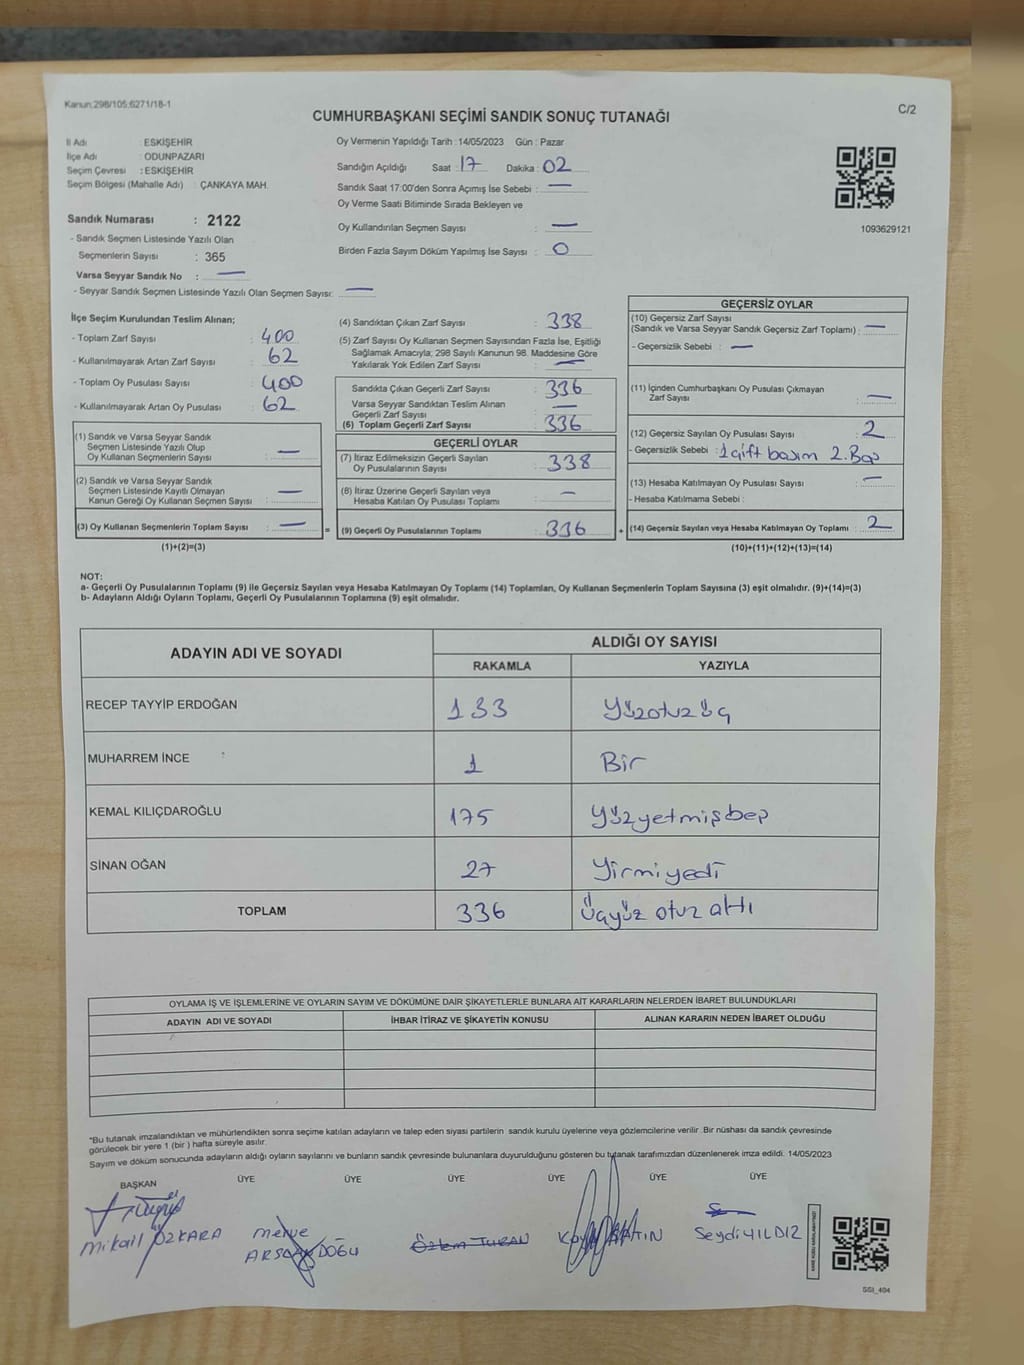 Kanun:298/105;6271/18-1
C/2
CUMHURBAŞKANI SEÇİMİ SANDIK SONUÇ TUTANAĞI
İl Adı : ESKİŞEHİR
İlçe Adı : ODUNPAZARI
Seçim Çevresi : ESKİŞEHİR
Seçim Bölgesi (Mahalle Adı) : ÇANKAYA MAH.
Sandık Numarası : 2122
- Sandık Seçmen Listesinde Yazılı Olan
Seçmenlerin Sayısı : 365
Varsa Seyyar Sandık No : —
- Seyyar Sandık Seçmen Listesinde Yazılı Olan Seçmen Sayısı: —
Oy Vermenin Yapıldığı Tarih : 14/05/2023 Gün : Pazar
Sandığın Açıldığı Saat : 17 Dakika : 02
Sandık Saat 17:00'den Sonra Açımış İse Sebebi : —
Oy Verme Saati Bitiminde Sırada Bekleyen ve
Oy Kullandırılan Seçmen Sayısı : —
Birden Fazla Sayım Döküm Yapılmış İse Sayısı : 0
1093629121
İlçe Seçim Kurulundan Teslim Alınan;
- Toplam Zarf Sayısı : 400
- Kullanılmayarak Artan Zarf Sayısı : 62
- Toplam Oy Pusulası Sayısı : 400
- Kullanılmayarak Artan Oy Pusulası : 62
(1) Sandık ve Varsa Seyyar Sandık
Seçmen Listesinde Yazılı Olup
Oy Kullanan Seçmenlerin Sayısı : —
(2) Sandık ve Varsa Seyyar Sandık
Seçmen Listesinde Kayıtlı Olmayan
Kanun Gereği Oy Kullanan Seçmen Sayısı : —
(3) Oy Kullanan Seçmenlerin Toplam Sayısı : —
(1)+(2)=(3)
(4) Sandıktan Çıkan Zarf Sayısı : 338
(5) Zarf Sayısı Oy Kullanan Seçmen Sayısından Fazla İse, Eşitliği
Sağlamak Amacıyla; 298 Sayılı Kanunun 98. Maddesine Göre
Yakılarak Yok Edilen Zarf Sayısı : —
Sandıkta Çıkan Geçerli Zarf Sayısı : 336
Varsa Seyyar Sandıktan Teslim Alınan
Geçerli Zarf Sayısı : —
(6) Toplam Geçerli Zarf Sayısı : 336
GEÇERLİ OYLAR
(7) İtiraz Edilmeksizin Geçerli Sayılan
Oy Pusulalarının Sayısı : 338
(8) İtiraz Üzerine Geçerli Sayılan veya
Hesaba Katılan Oy Pusulası Toplamı : —
= (9) Geçerli Oy Pusulalarının Toplamı : 336 +
GEÇERSİZ OYLAR
(10) Geçersiz Zarf Sayısı
(Sandık ve Varsa Seyyar Sandık Geçersiz Zarf Toplamı) : —
- Geçersizlik Sebebi : —
(11) İçinden Cumhurbaşkanı Oy Pusulası Çıkmayan
Zarf Sayısı : —
(12) Geçersiz Sayılan Oy Pusulası Sayısı : 2
- Geçersizlik Sebebi : 1 çift basım 2. Boş
(13) Hesaba Katılmayan Oy Pusulası Sayısı : —
- Hesaba Katılmama Sebebi :
(14) Geçersiz Sayılan veya Hesaba Katılmayan Oy Toplamı : 2
(10)+(11)+(12)+(13)=(14)
NOT:
a- Geçerli Oy Pusulalarının Toplamı (9) ile Geçersiz Sayılan veya Hesaba Katılmayan Oy Toplamı (14) Toplamları, Oy Kullanan Seçmenlerin Toplam Sayısına (3) eşit olmalıdır. (9)+(14)=(3)
b- Adayların Aldığı Oyların Toplamı, Geçerli Oy Pusulalarının Toplamına (9) eşit olmalıdır.
ADAYIN ADI VE SOYADI
ALDIĞI OY SAYISI
RAKAMLA YAZIYLA
RECEP TAYYİP ERDOĞAN 133 Yüzotuz üç
MUHARREM İNCE 1 Bir
KEMAL KILIÇDAROĞLU 175 Yüzyetmişbeş
SİNAN OĞAN 27 Yirmiyedi
TOPLAM 336 Üçyüz otuz altı
OYLAMA İŞ VE İŞLEMLERİNE VE OYLARIN SAYIM VE DÖKÜMÜNE DAİR ŞİKAYETLERLE BUNLARA AİT KARARLARIN NELERDEN İBARET BULUNDUKLARI
ADAYIN ADI VE SOYADI İHBAR İTİRAZ VE ŞİKAYETİN KONUSU ALINAN KARARIN NEDEN İBARET OLDUĞU
"Bu tutanak imzalandıktan ve mühürlendikten sonra seçime katılan adayların ve talep eden siyasi partilerin sandık kurulu üyelerine veya gözlemcilerine verilir. Bir nüshası da sandık çevresinde
görülecek bir yere 1 (bir) hafta süreyle asılır.
Sayım ve döküm sonucunda adayların aldığı oyların sayılarını ve bunların sandık çevresinde bulunanlara duyurulduğunu gösteren bu tutanak tarafımızdan düzenlenerek imza edildi. 14/05/2023
BAŞKAN ÜYE ÜYE ÜYE ÜYE ÜYE ÜYE
Mikail ÖZKARA
Merve
Özlem TURAN
Seydi YILDIZ
SSI_404